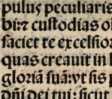 pulus peculiaris
bi: ⁊ custodias o
faciet te excelsio
quas creauit in l
gloriã suã: vt sis p
dñi dei tui: sicut